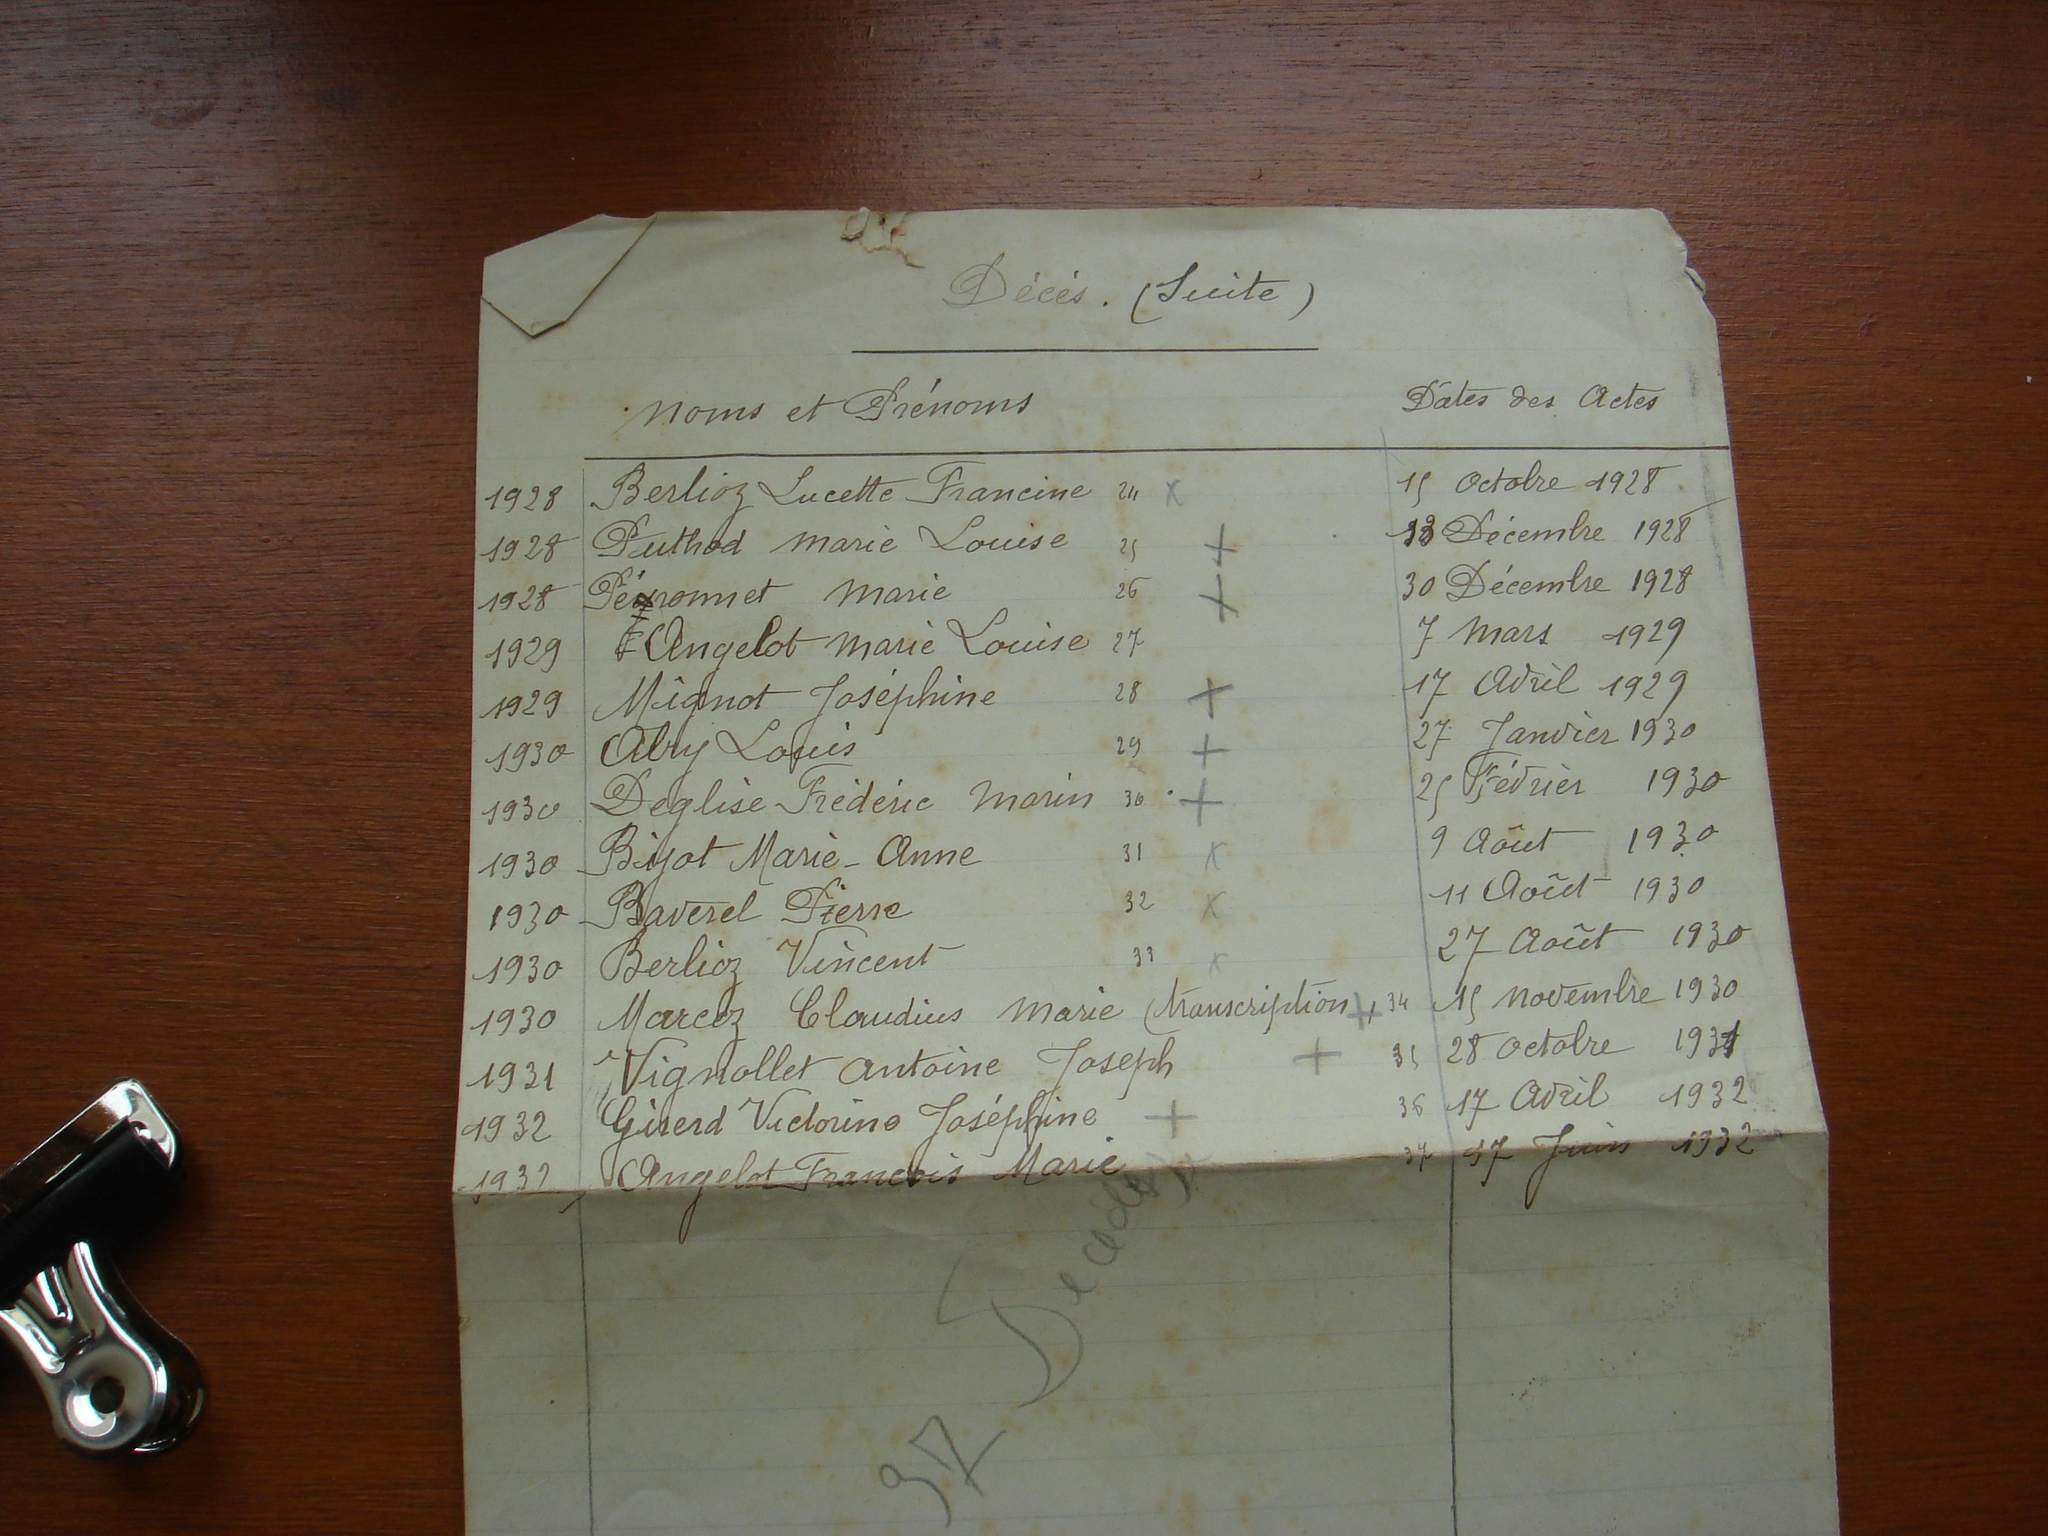 Décés. (Suite)
Noms et Prénoms Dates des Actes
1928 Berlioz Lucette Francine 24 x 15 Octobre 1928
1928 Puthod Marie Louise 25 + Décembre 1928
1928 Marie 26 + 30 Décembre 1928
1929 Angelot Marie Louise 27 7 Mars 1929
1929 Mignot Joséphine 28 + 17 Avril 1929
1930 Abry Louis 29 + 27 Janvier 1930
1930 Deglise Frédéric Marin 30 + 25 Février 1930
1930 Marie-Anne 31 x 9 Août 1930
1930 Baverel Pierre 32 x 11 Août 1930
1930 Berlioz Vincent 33 x 27 Août 1930
1930 Marcoz Claudius Marie (transcription) + 34 15 Novembre 1930
1931 Vignollet Antoine Joseph + 35 28 Octobre 1931
1932 Girerd Victorine Joséphine + 36 17 Avril 1932
1932 Angelot François Marie 37 17 Juin 1932
37 Décédés